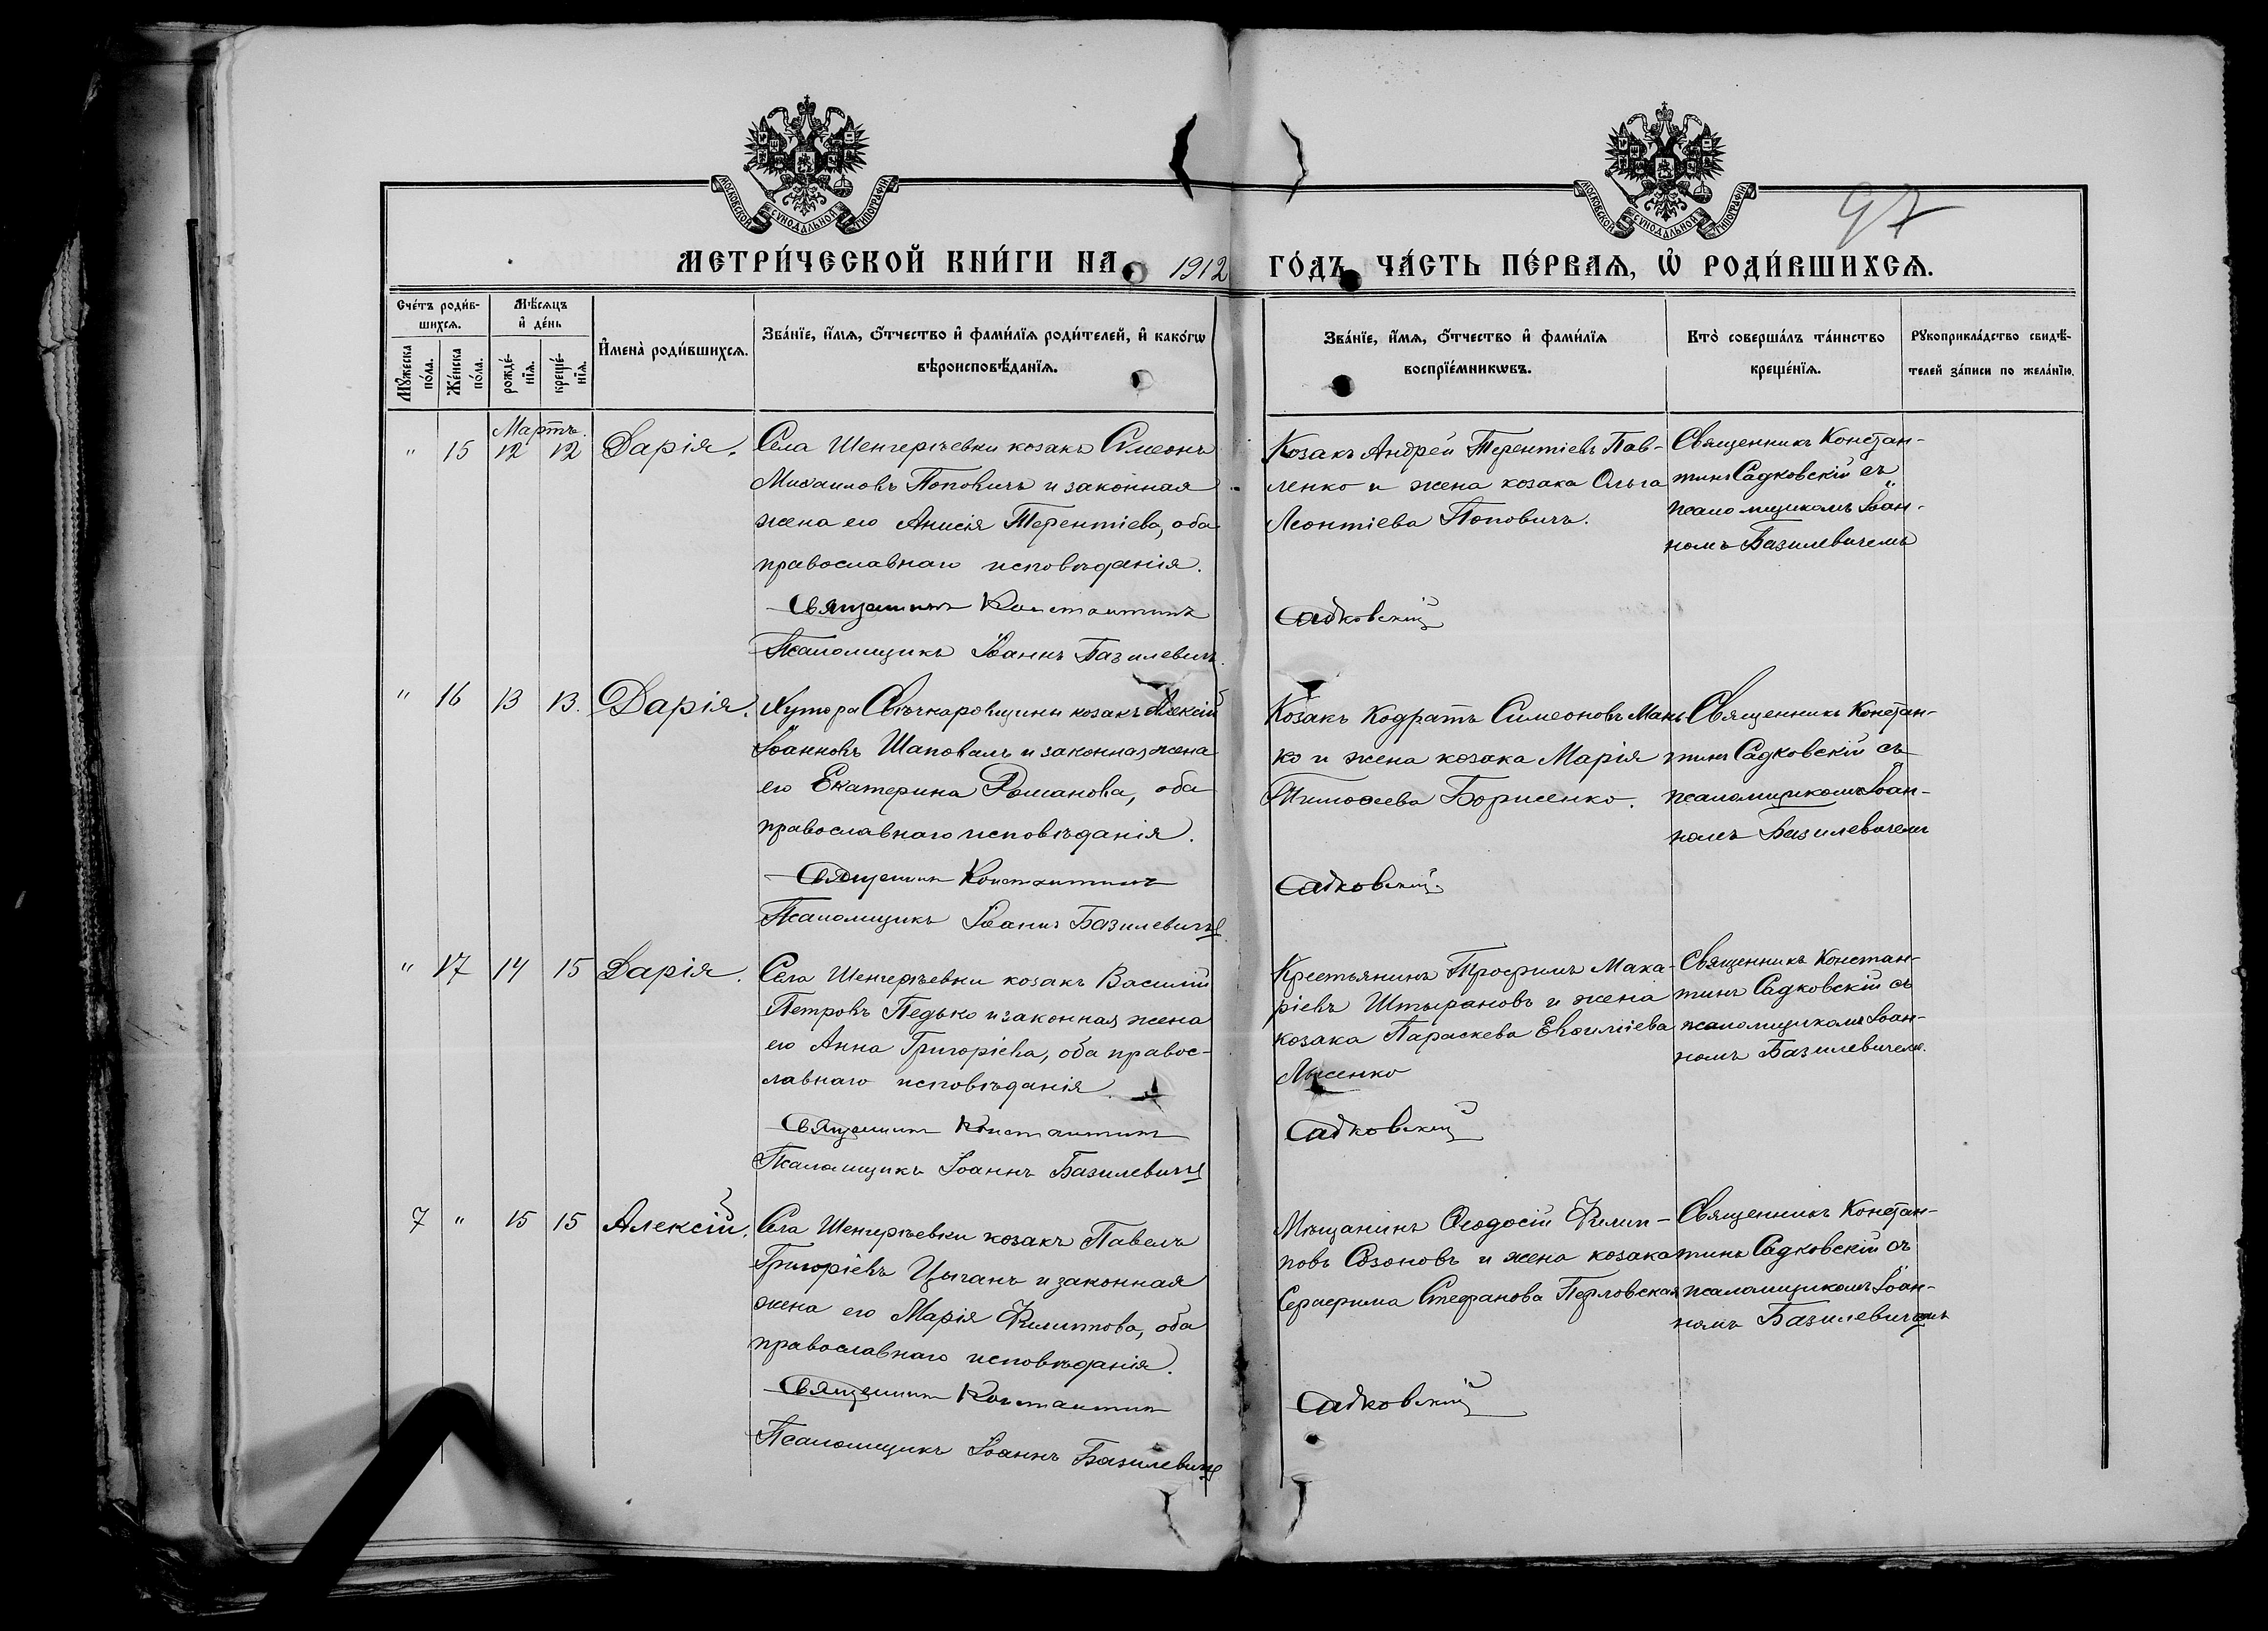 МОСКОВСКОЙ СУНОДАЛЬНОЙ ТИПОГРАФІИ
МОСКОВСКОЙ СУНОДАЛЬНОЙ ТИПОГРАФІИ
97
МЕТРИ́ЧЕСКОЙ КНИ́ГИ НА 1912 ГО́ДЪ, ЧА́СТЬ ПЕ́РВАЯ, Ѡ҆ РОДИ́ВШИХСЯ.
Сче́тъ роди́в-
шихся.
Мꙋжеска по́ла.
Же́нска по́ла.
Мѣ́сяцъ и҆ де́нь
рожде́-
нїя.
креще́-
нїя.
И҆мена̀ роди́вшихся.
Зва́нїе, и҆́мя, ѻ҆́тчество и҆ фами́лїя роди́телей, и҆ како́гѡ
вѣроисповѣ́данїя.
Зва́нїе, и҆́мя, ѻ҆́тчество и҆ фами́лїя
воспрїе́мникѡвъ.
Кто̀ соверша́лъ та́инство
креще́нїя.
Рꙋкоприкла́дство свидѣ́-
телей за́писи по жела́нїю.
Мартъ.
" 15 12 12 Дарія.
Села Шенгерѣевки козакъ Симеонъ
Михаиловъ Поповичъ и законная
жена его Анисія Терентіева, оба
православнаго исповѣданія.
Священникъ Константинъ
Псаломщикъ Іоаннъ Базилевичъ.
Козакъ Андрей Терентіевъ Пав-
ленко и жена козака Ольга
Леонтіева Поповичъ.
Садковскій
Священникъ Констан-
тинъ Садковскій съ
псаломщикомъ Іоан-
номъ Базилевичемъ
" 16 13 13. Дарія.
Хутора Свѣчкаровщины козакъ Алексій
Іоанновъ Шаповалъ и законная жена
его Екатерина Романова, оба
православнаго исповѣданія.
Священникъ Константинъ
Псаломщикъ Іоаннъ Базилевичъ
Козакъ Кодратъ Симеоновъ Мань
ко и жена козака Марія
Тимоѳеева Борисенко.
Садковскій
Священникъ Констан-
тинъ Садковскій съ
псаломщикомъ Іоан-
номъ Базилевичемъ
" 17 14 15 Дарія.
Села Шенгерѣевки козакъ Василій
Петровъ Педько и законная жена
его Анна Григоріева, оба правос-
лавнаго исповѣданія.
Священникъ Константинъ
Псаломщикъ Іоаннъ Базилевичъ
Крестьянинъ Трофимъ Мака-
ріевъ Штырановъ и жена
козака Параскева
Лысенко
Садковскій
Священникъ Констан-
тинъ Садковскій съ
псаломщикомъ Іоан-
номъ Базилевичемъ.
7 " 15 15 Алексій.
Села Шенгерѣевки козакъ Павелъ
Григоріевъ Цыганъ и законная
жена его Марія Филиппова, оба
православнаго исповѣданія.
Священникъ Константинъ
Псаломщикъ Іоаннъ Базилевичъ
Мѣщанинъ Ѳеодосій Филип-
повъ Созоновъ и жена козака
Серафима Стефанова Перловская
Садковскій
Священникъ Констан-
тинъ Садковскій съ
псаломщикомъ Іоан-
номъ Базилевичемъ